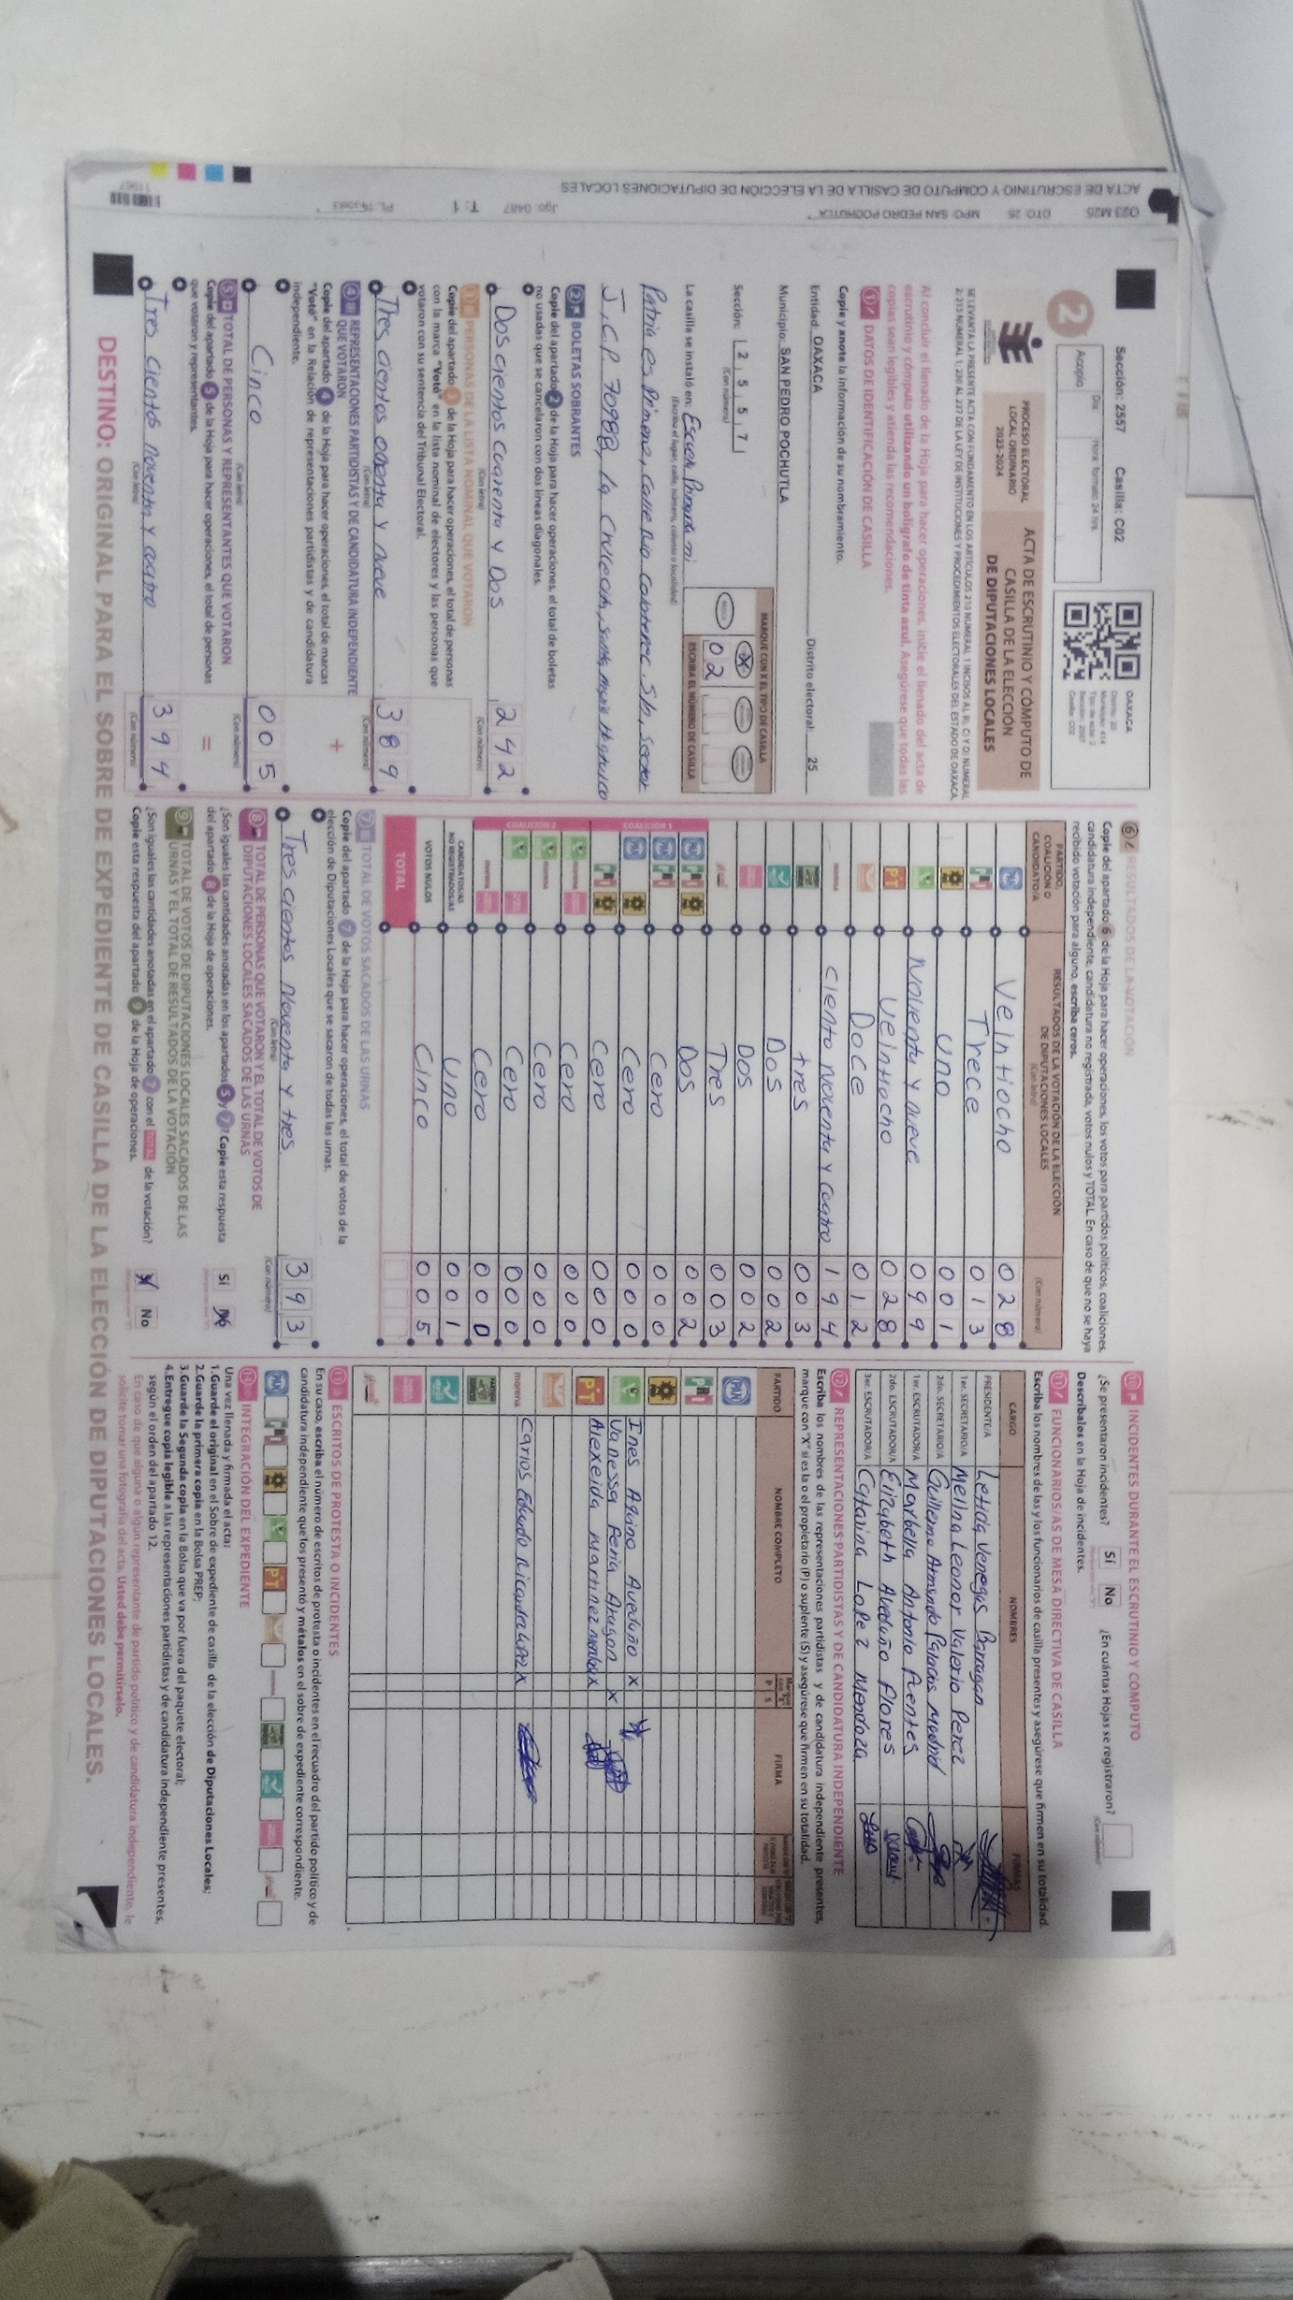 ACTA DE ESCRUTINIO Y CÓMPUTO DE CASILLA DE LA ELECCIÓN DE DIPUTACIONES LOCALES
DTO: 25 MPO: SAN PEDRO POCHUTLA
T: 1
Sección: 2557 Casilla: C02
2
Acopio
Día
Hora formato 24 hrs.
PROCESO ELECTORAL
LOCAL ORDINARIO
2023-2024
ACTA DE ESCRUTINIO Y CÓMPUTO DE
CASILLA DE LA ELECCIÓN
DE DIPUTACIONES LOCALES
OAXACA
Al concluir el llenado de la Hoja para hacer operaciones, inicie el llenado del acta de
escrutinio y cómputo utilizando un bolígrafo de tinta azul. Asegúrese que todas las
copias sean legibles y atienda las recomendaciones.
1 DATOS DE IDENTIFICACIÓN DE CASILLA
Copie y anote la información de su nombramiento.
Entidad: OAXACA Distrito electoral: 25
Municipio: SAN PEDRO POCHUTLA
Sección: 2 5 5 7
(Con número)
MARQUE CON X EL TIPO DE CASILLA
ESCRIBA EL NÚMERO DE CASILLA
X
0 2
La casilla se instaló en: Escuela Primaria mi
(Escriba el lugar, calle, número, colonia o localidad)
Patria es Primero, Calle Rio Colotepec S/n, sector
J, C.P 70988, La Crucecita, Santa Maria Huatulco
2 BOLETAS SOBRANTES
Copie del apartado 2 de la Hoja para hacer operaciones, el total de boletas
no usadas que se cancelaron con dos líneas diagonales.
Doscientos cuarenta y Dos 2 4 2
(Con letra) (Con número)
3 PERSONAS DE LA LISTA NOMINAL QUE VOTARON
Copie del apartado 3 de la Hoja para hacer operaciones, el total de personas
con la marca "Votó" en la lista nominal de electores y las personas que
votaron con su sentencia del Tribunal Electoral.
Tres cientos ochenta y nueve 3 8 9
(Con letra) (Con número)
4 REPRESENTACIONES PARTIDISTAS Y DE CANDIDATURA INDEPENDIENTE
QUE VOTARON
+
Copie del apartado 4 de la Hoja para hacer operaciones, el total de marcas
"Votó" en la Relación de representaciones partidistas y de candidatura
independiente.
Cinco 0 0 5
(Con letra) (Con número)
5 TOTAL DE PERSONAS Y REPRESENTANTES QUE VOTARON
=
Copie del apartado 5 de la Hoja para hacer operaciones, el total de personas
que votaron y representantes.
Tres cientos noventa y cuatro 3 9 4
(Con letra) (Con número)
6 RESULTADOS DE LA VOTACIÓN
Copie del apartado 6 de la Hoja para hacer operaciones, los votos para partidos políticos, coaliciones,
candidatura independiente, candidatura no registrada, votos nulos y TOTAL. En caso de que no se haya
recibido votación para alguno, escriba ceros.
PARTIDO,
COALICIÓN O
CANDIDATO/A
RESULTADOS DE LA VOTACIÓN DE LA ELECCIÓN
DE DIPUTACIONES LOCALES
(Con letra)
(Con número)
Veintiocho 0 2 8
Trece 0 1 3
uno 0 0 1
Noventa y nueve 0 9 9
Veintiocho 0 2 8
Doce 0 1 2
morena Ciento noventa y cuatro 1 9 4
tres 0 0 3
Dos 0 0 2
Dos 0 0 2
Tres 0 0 3
COALICIÓN 1
Dos 0 0 2
Cero 0 0 0
Cero 0 0 0
Cero 0 0 0
COALICIÓN 2
Cero 0 0 0
Cero 0 0 0
Cero 0 0 0
Cero 0 0 0
CANDIDATOS/AS
NO REGISTRADOS/AS
Uno 0 0 1
VOTOS NULOS Cinco 0 0 5
TOTAL
7 TOTAL DE VOTOS SACADOS DE LAS URNAS
Copie del apartado 7 de la Hoja para hacer operaciones, el total de votos de la
elección de Diputaciones Locales que se sacaron de todas las urnas.
Tres cientos Noventa y tres 3 9 3
(Con letra) (Con número)
8 TOTAL DE PERSONAS QUE VOTARON Y EL TOTAL DE VOTOS DE
DIPUTACIONES LOCALES SACADOS DE LAS URNAS
¿Son iguales las cantidades anotadas en los apartados 5 y 7? Copie esta respuesta
del apartado 8 de la Hoja de operaciones.
SI No
9 TOTAL DE VOTOS DE DIPUTACIONES LOCALES SACADOS DE LAS
URNAS Y EL TOTAL DE RESULTADOS DE LA VOTACIÓN
¿Son iguales las cantidades anotadas en el apartado 7 con el TOTAL de la votación?
Copie esta respuesta del apartado 9 de la Hoja de operaciones.
Sí No
10 INCIDENTES DURANTE EL ESCRUTINIO Y CÓMPUTO
¿Se presentaron incidentes? Sí No ¿En cuántas Hojas se registraron?
(Con número)
Descríbalos en la Hoja de incidentes.
11 FUNCIONARIOS/AS DE MESA DIRECTIVA DE CASILLA
Escriba los nombres de las y los funcionarios de casilla presentes y asegúrese que firmen en su totalidad.
CARGO NOMBRES FIRMAS
PRESIDENTE/A Leticia Venegas Barragan
1er. SECRETARIO/A Melina Leonor Valerio Perez
2do. SECRETARIO/A Guillermo Armando Palacios Madrid
1er. ESCRUTADOR/A Marbella Antonio Fuentes
2do. ESCRUTADOR/A Elizabeth Avedaño Flores
3er. ESCRUTADOR/A Catarina Lopez Mendoza
12 REPRESENTACIONES PARTIDISTAS Y DE CANDIDATURA INDEPENDIENTE
Escriba los nombres de las representaciones partidistas y de candidatura independiente presentes,
marque con "X" si es la o el propietario (P) o suplente (S) y asegúrese que firmen en su totalidad.
PARTIDO NOMBRE COMPLETO P S FIRMA
Ines Aquino Avedaño X
Vanessa Peria Aragon X
Alexeida Martinez X
morena Carlos Eduardo Ricardez Lopez X
13 ESCRITOS DE PROTESTA O INCIDENTES
En su caso, escriba el número de escritos de protesta o incidentes en el recuadro del partido político y de
candidatura independiente que los presentó y métalos en el sobre de expediente correspondiente.
14 INTEGRACIÓN DEL EXPEDIENTE
Una vez llenada y firmada el acta:
1.Guarde el original en el Sobre de expediente de casilla de la elección de Diputaciones Locales;
2.Guarde la primera copia en la Bolsa PREP;
3.Guarde la Segunda copia en la Bolsa que va por fuera del paquete electoral;
4.Entregue copia legible a las representaciones partidistas y de candidatura independiente presentes,
según el orden del apartado 12.
En caso de que alguna o algún representante de partido político y de candidatura independiente, le
solicite tomar una fotografía del acta, Usted debe permitírselo.
DESTINO: ORIGINAL PARA EL SOBRE DE EXPEDIENTE DE CASILLA DE LA ELECCIÓN DE DIPUTACIONES LOCALES.